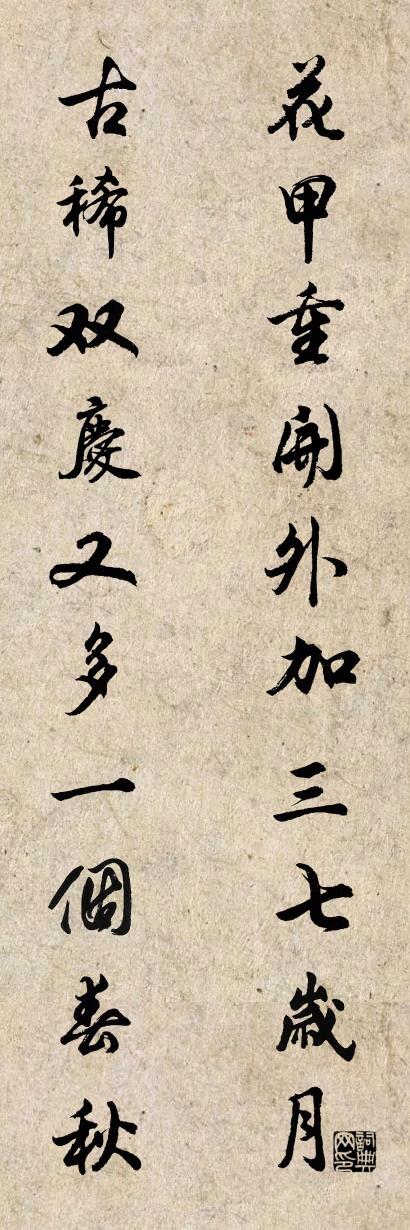 花甲重開外加三七歲月
古稀双慶又多一個春秋
詞典
网印